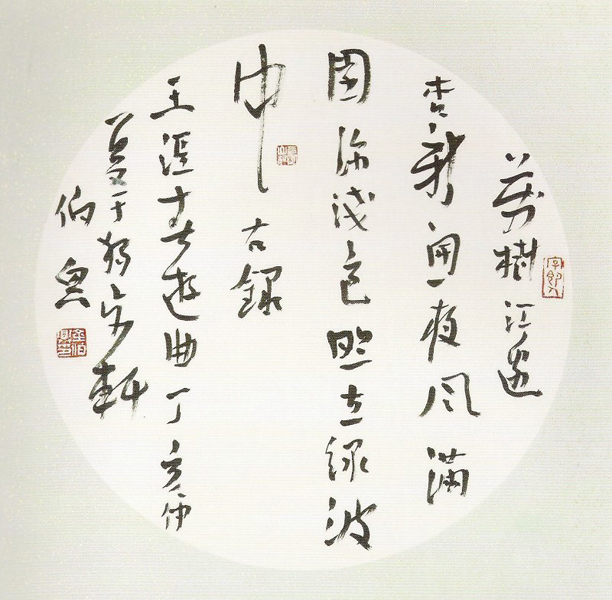 萬樹江邊
杏新開一夜風滿
園深淺色照在綠波
中 右録
王涯春遊曲丁亥仲
夏于獨步軒
伯興